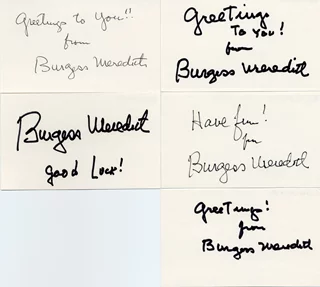 Greetings to You!!
from
Burgess Meredith
Greetings
To You!
from
Burgess Meredith
Burgess Meredith
Good Luck!
Have fun!
from
Burgess Meredith
Greetings!
from
Burgess Meredith